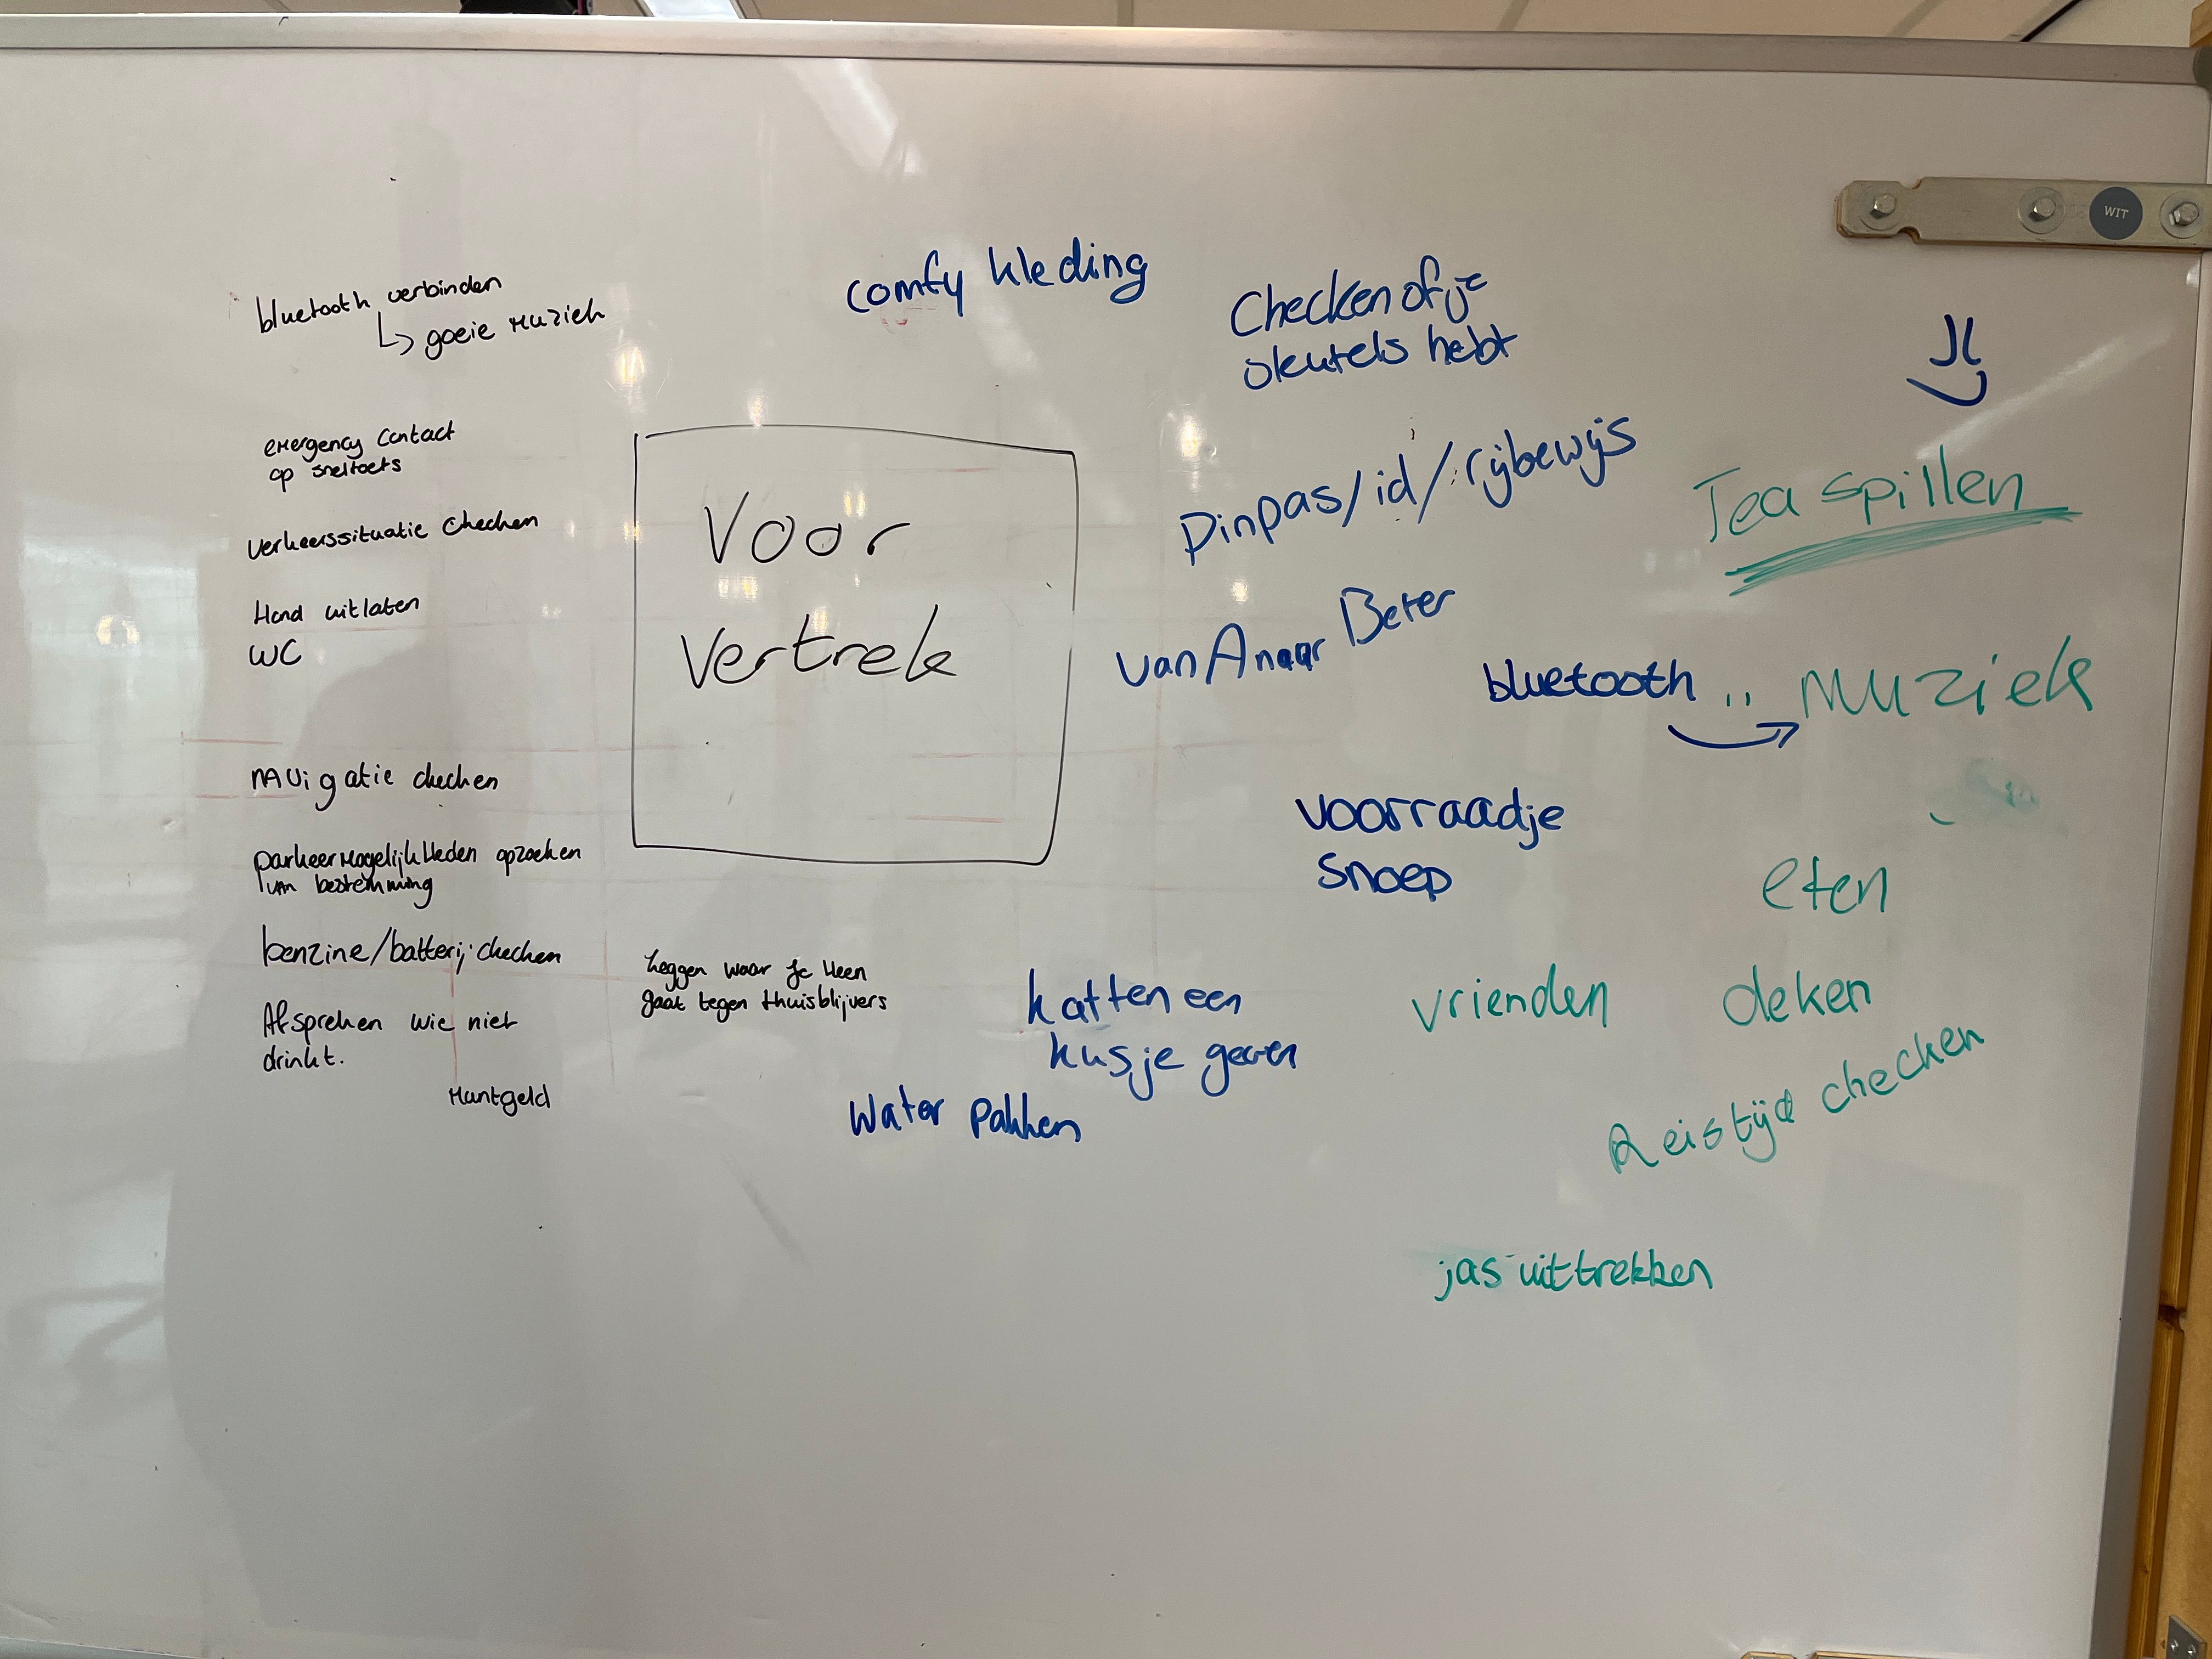 WIT
comfy kleding
Checken of je
sleutels hebt
bluetooth verbinden
↳ goeie muziek
emergency contact
op sneltoets
Pinpas/id/rijbewijs
Tea spillen
Voor
Vertrek
verkeerssituatie checken
Hond uitlaten
WC
van A naar Beter
bluetooth .. muziek
navigatie checken
voorraadje
snoep
parkeermogelijkheden opzoeken
van bestemming
eten
benzine/batterij checken
zeggen waar je heen
gaat tegen thuisblijvers
katten een
kusje geven
vrienden
deken
Afspreken wie niet
drinkt.
Muntgeld
water pakken
Reistijd checken
jas uittrekken